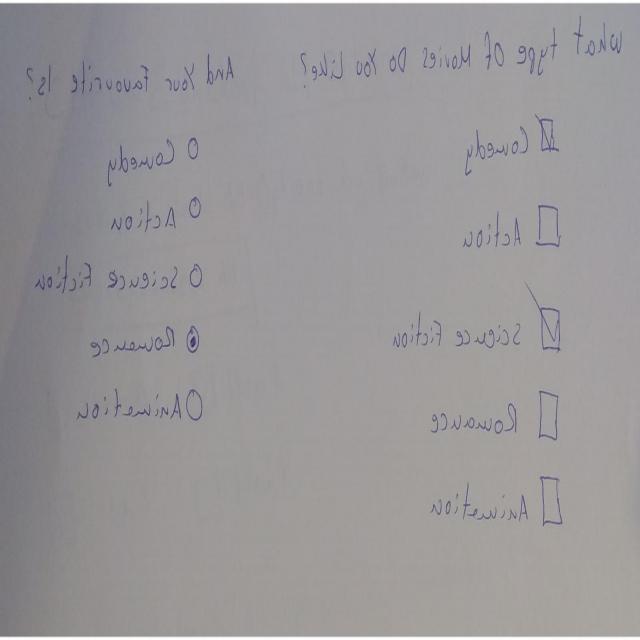 What type Of Movies Do You Like?
☑ Comedy
☐ Action
☑ Science Fiction
☐ Romance
☐ Animation
And Your Favourite Is?
○ Comedy
○ Action
○ Science Fiction
◉ Romance
○ Animation